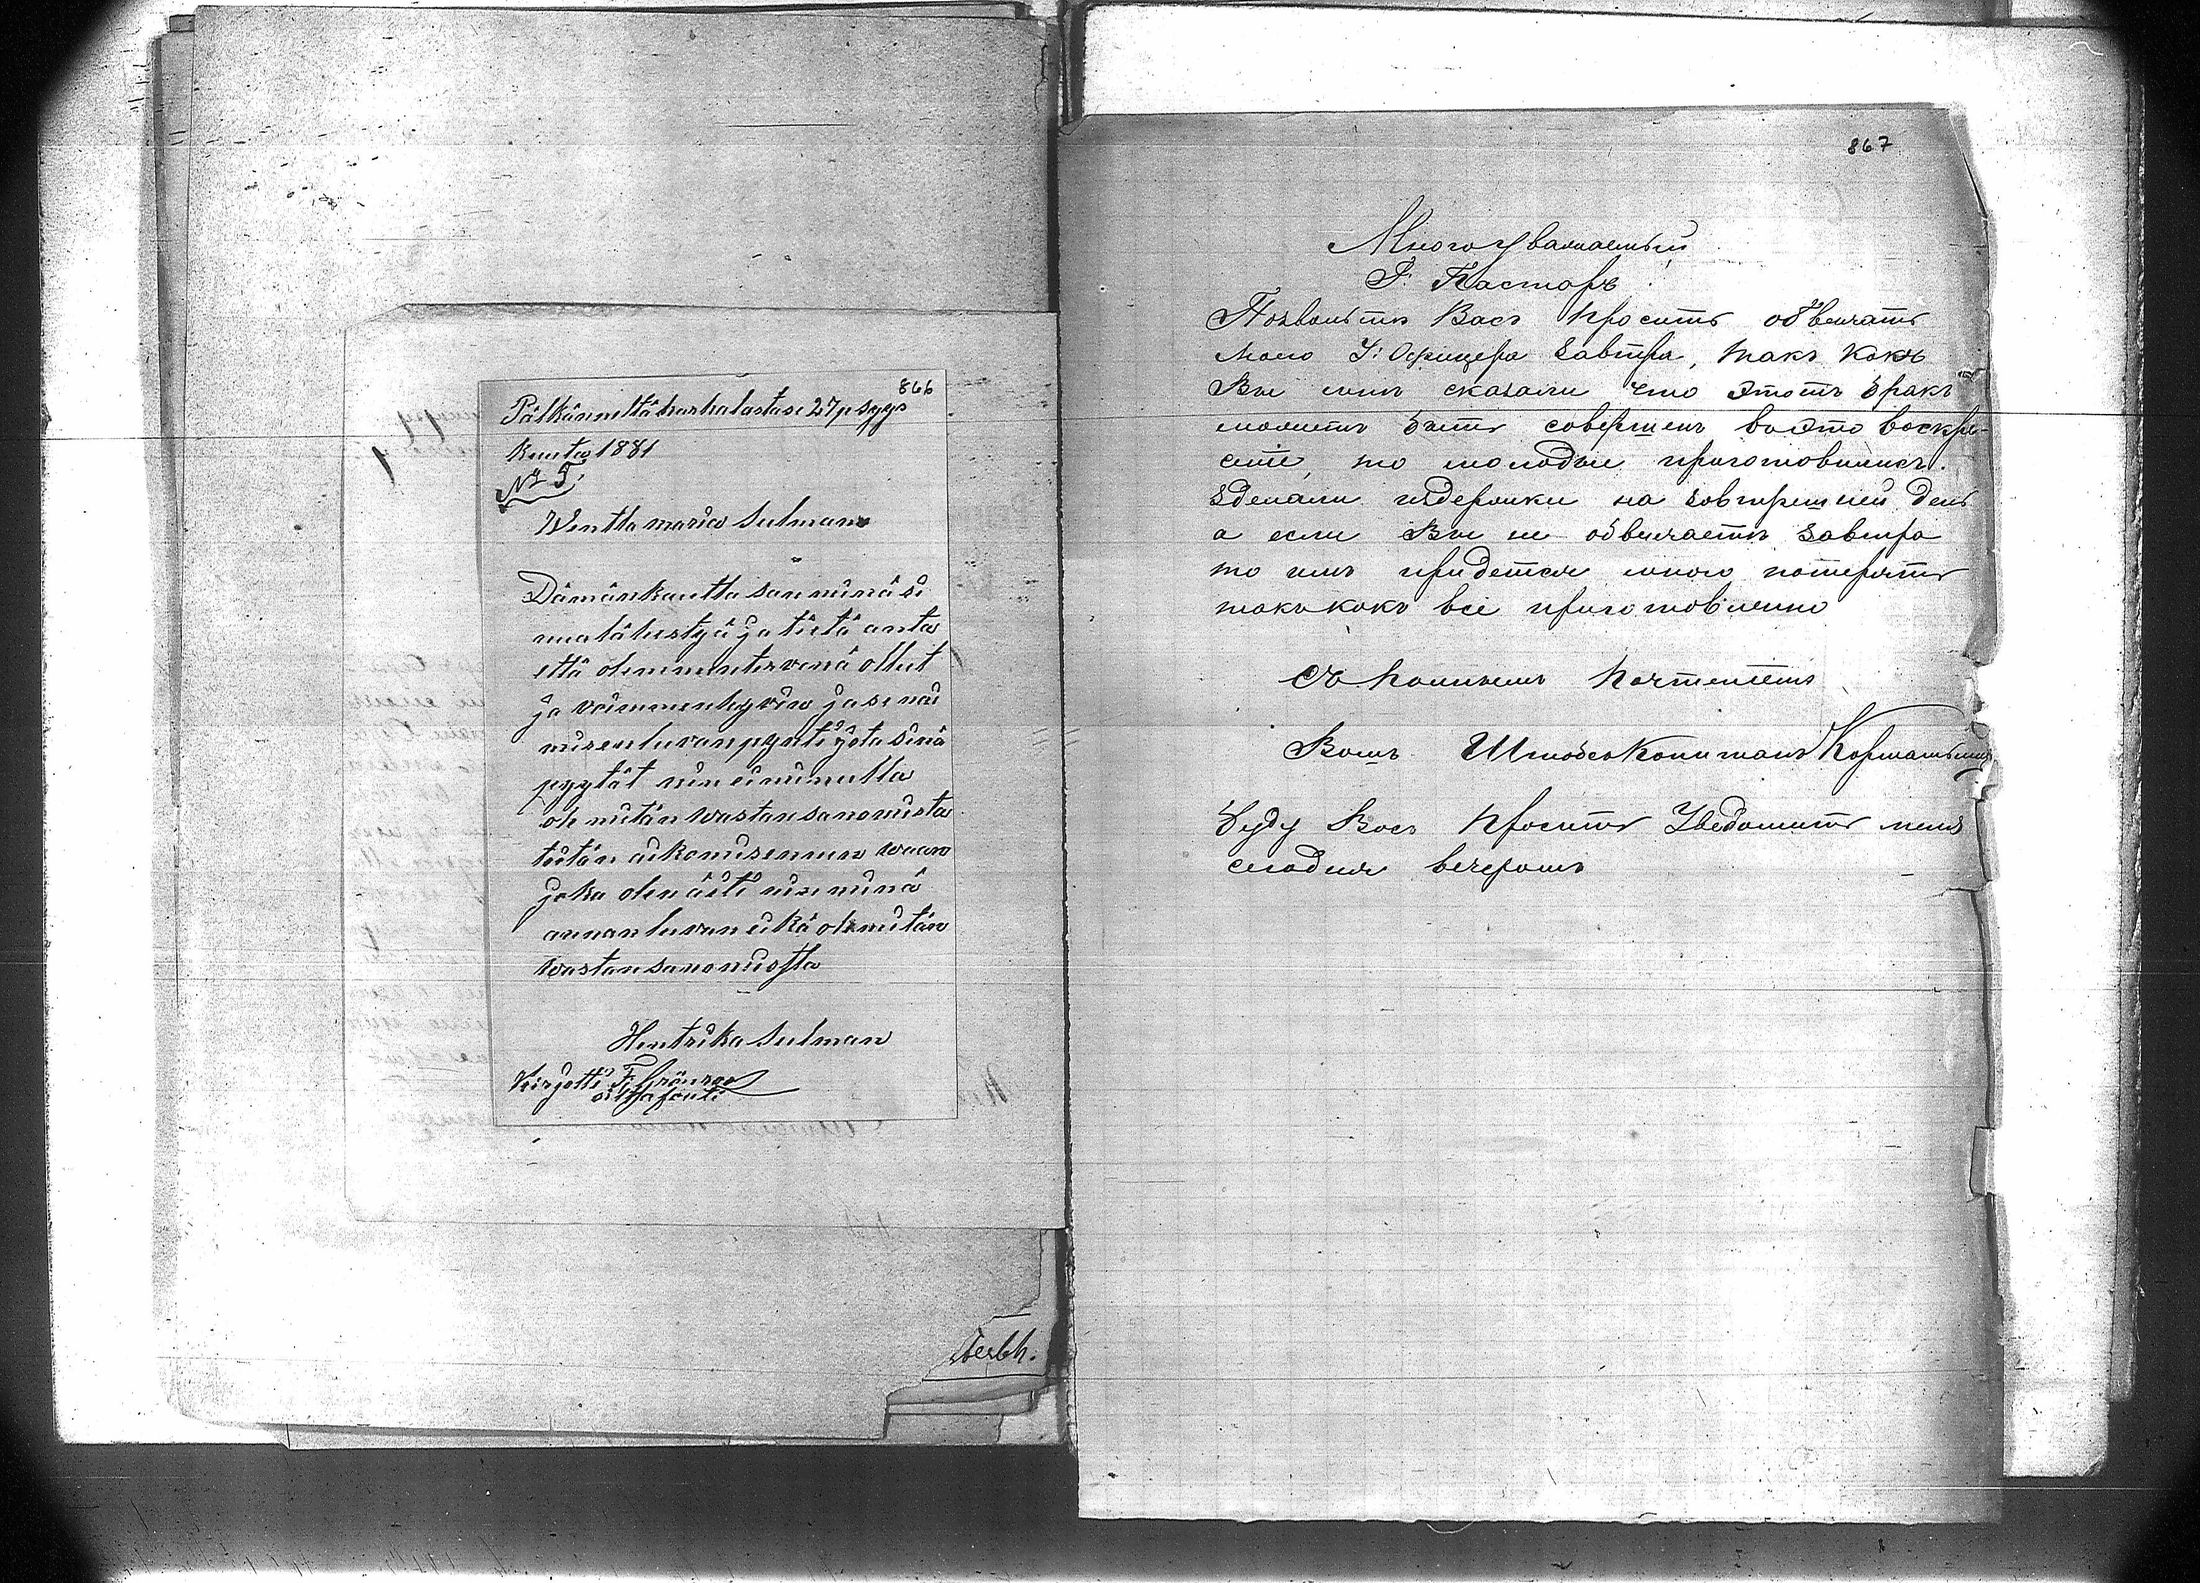 866
Pälkäneeltä harhalastase 27 p syys
kuuta 1881
No 5
Wentla maria Sulman
Dämänkautta saan minä si
nua lähestyä ja tietä anta
että olemmen tervenä ollut
ja voimmen hyvin ja se nai
misen luvan pyyntö jota sinä
pyytät niin ei minulla
ole mitän wastan sanomista
teitän aikomisennen waan
joka olen äiti niin minä
annan luvan eikä ole mitän
wastan sanomista
Hentrika Sulman
Kirjotti F. Grönroos
867
Многоуважаемый
Г. Пасторъ
Позвольте Васъ просить обвенчать
моего У: Офицера завтра, такъ какъ
Вы мне сказали что этотъ бракъ
можетъ быть совершенъ во это воскре-
сите, то молодые приготовились.
зделали издержки на завтрешней день
а если Вы не обвенчаете завтра
то имъ придется много потерять
такъ какъ все приготовленно
Съ почтениемъ
Вашъ Штабсъ Капитанъ
Буду Васъ просить Уведомить меня
сегодня вечеромъ